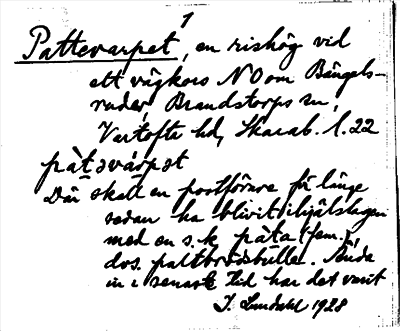 1
Pattevarpet, en rishög vid
ett vägkors NO om Bängels-
ruder, Brandstorps sn,
Vartofta hd, Skarab. l. 22
pàtəvárpət
Där skall en postförare för länge
sedan ha blivit ihjälslagen
med en s.k. pàta (fem.),
dvs. paltbrödsbulle. Ända
in i senaste tid har det varit
J. Lundahl 1928